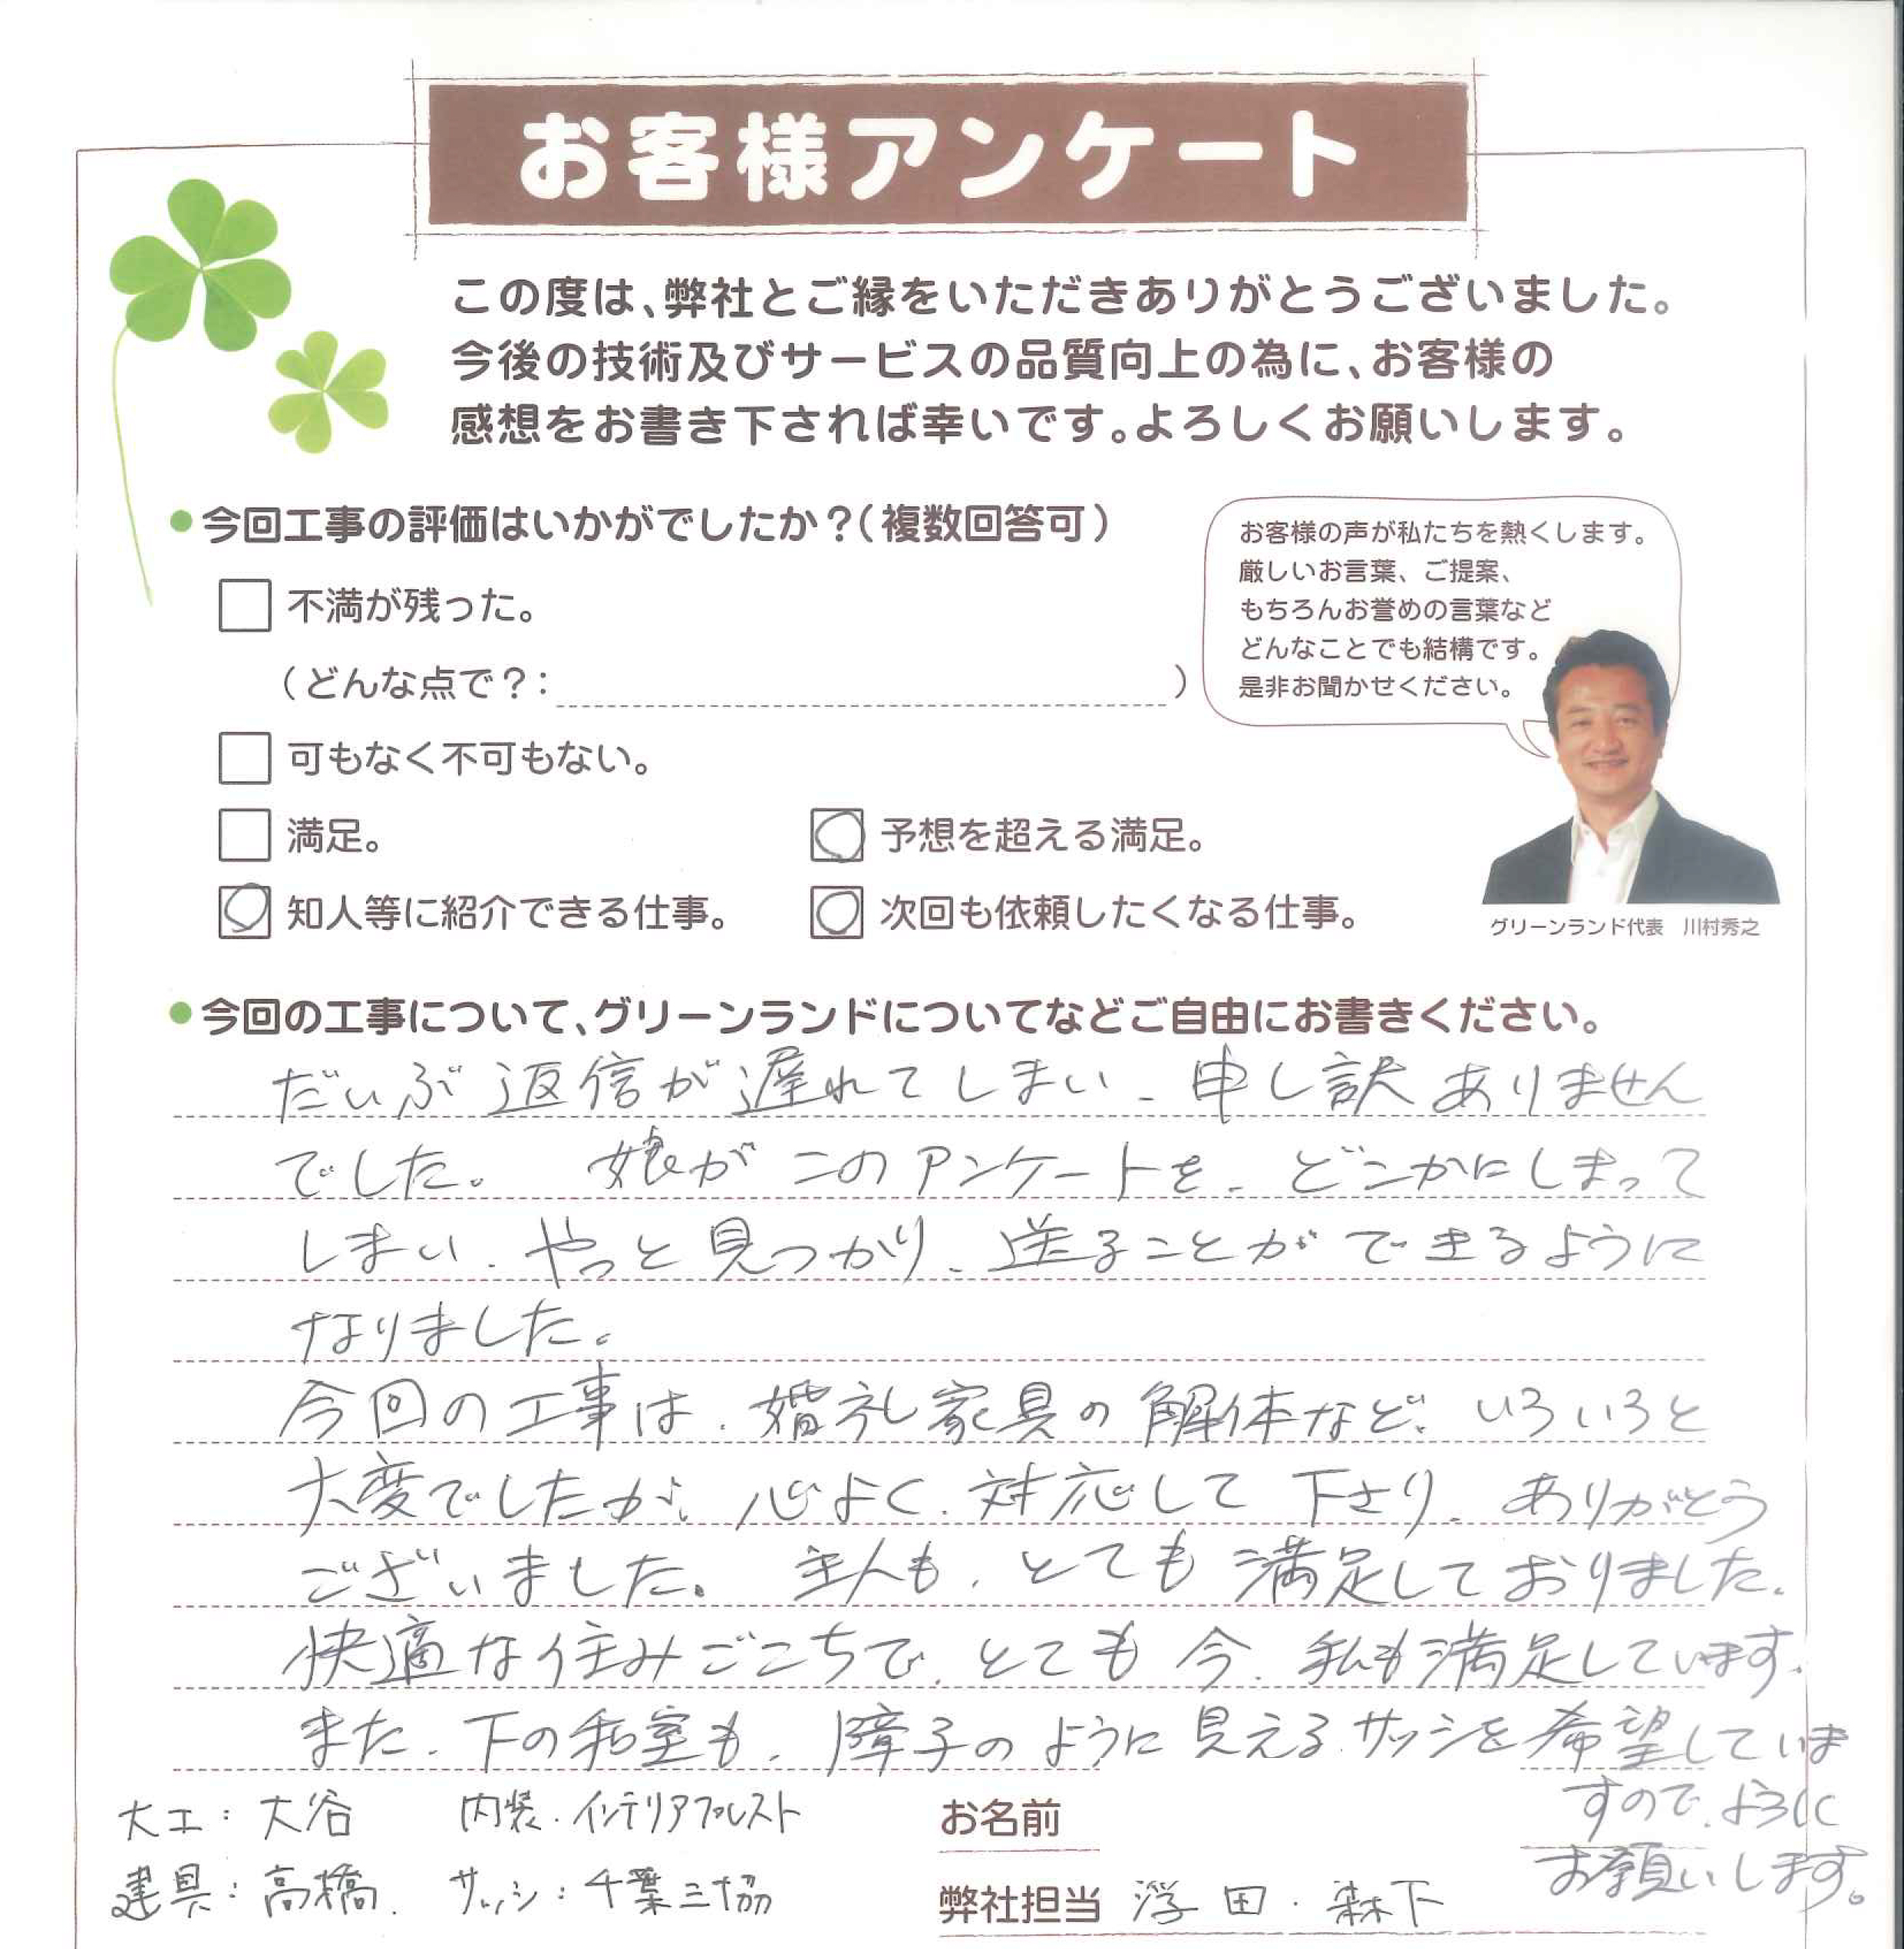 お客様アンケート
この度は、弊社とご縁をいただきありがとうございました。
今後の技術及びサービスの品質向上の為に、お客様の
感想をお書き下されば幸いです。よろしくお願いします。
●今回工事の評価はいかがでしたか？（複数回答可）
不満が残った。
（どんな点で？：　）
可もなく不可もない。
満足。
予想を超える満足。
知人等に紹介できる仕事。
次回も依頼したくなる仕事。
お客様の声が私たちを熱くします。
厳しいお言葉、ご提案、
もちろんお誉めの言葉など
どんなことでも結構です。
是非お聞かせください。
グリーンランド代表　川村秀之
●今回の工事について、グリーンランドについてなどご自由にお書きください。
だいぶ返信が遅れてしまい、申し訳ありません
でした。　娘がこのアンケートを、どこかにしまって
しまい、やっと見つかり、送ることができるように
なりました。
今回の工事は、婚礼家具の解体など、いろいろと
大変でしたが、心よく、対応して下さり、ありがとう
ございました。　主人も、とても満足しておりました。
快適な住みごこちで、とても今、私も満足しています。
また、下の和室も、障子のように見えるサッシを希望していま
すので、よろしく
お願いします。
大工：大谷　内装：インテリアフォレスト
建具：高橋　サッシ：千葉三協
お名前
弊社担当　浮田・森下